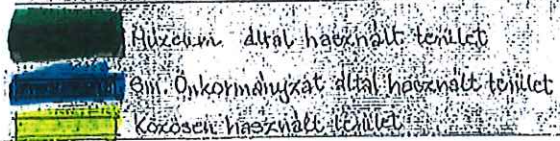 Múzeum által használt terület
Bm. Önkormányzat által használt terület
Közösen használt terület